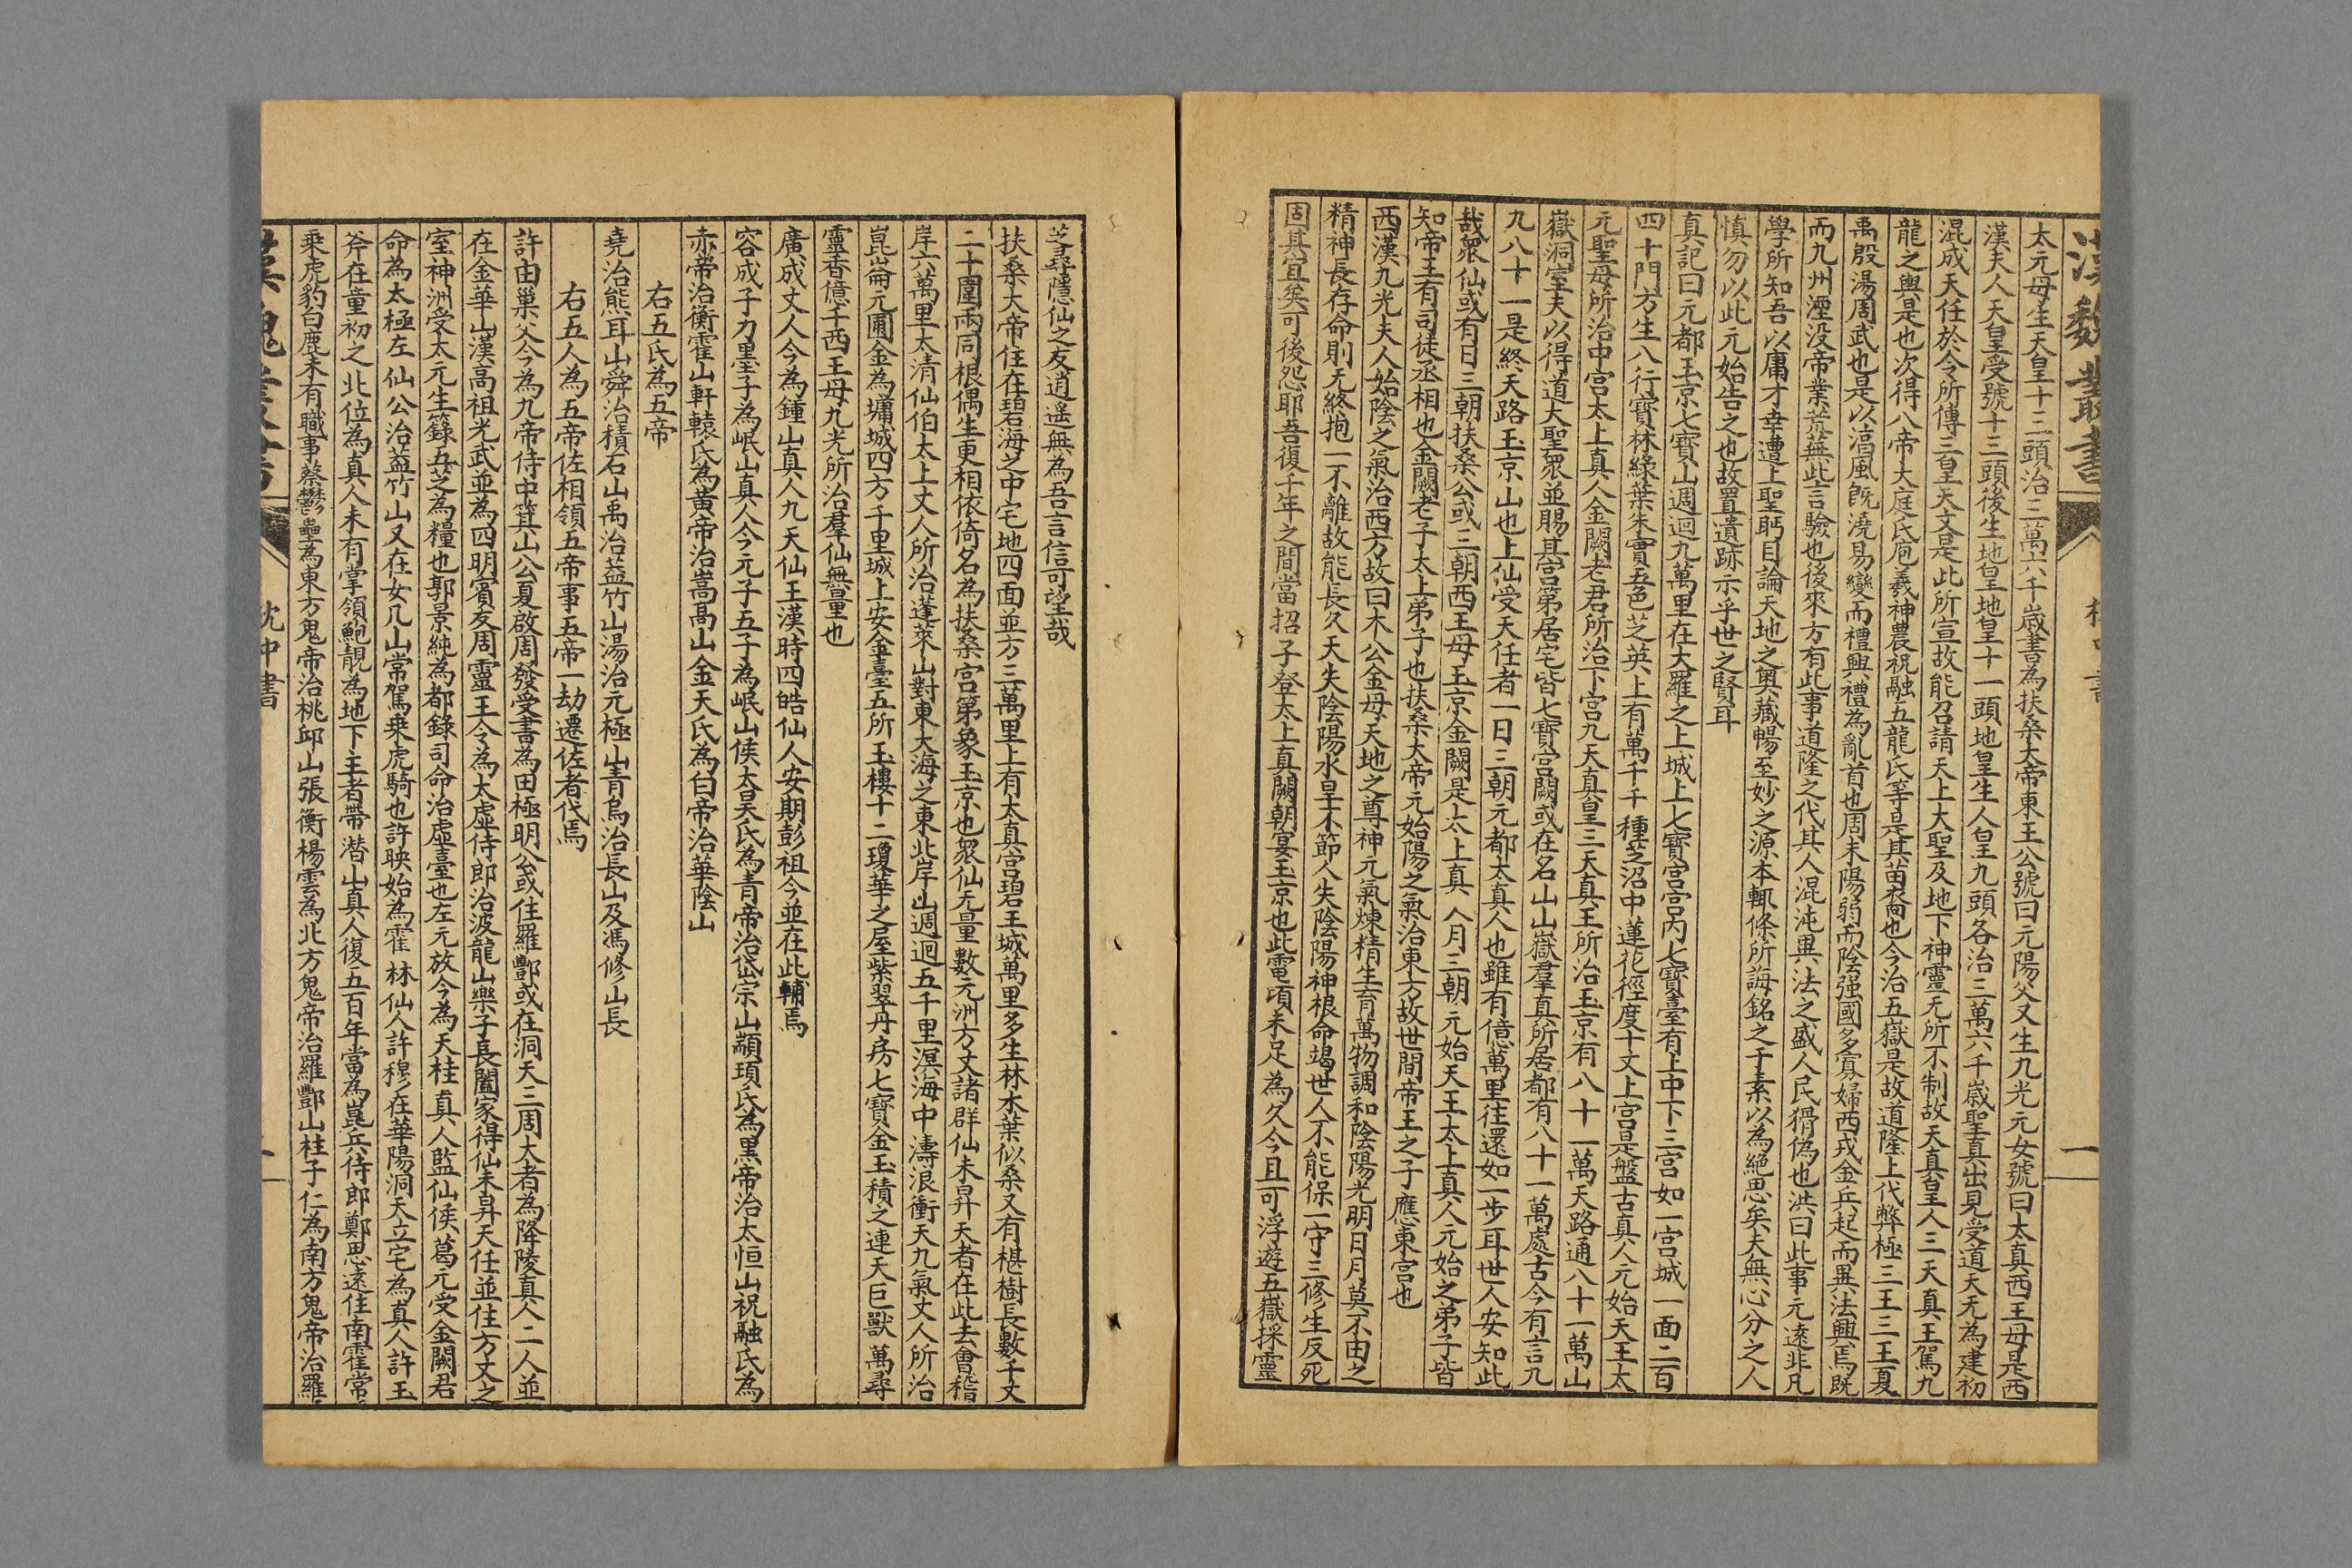 漢魏叢書
枕中書
一
太元母生天皇十三頭治三萬六千歲書為扶桑大帝東王公號曰元陽父又生九光元女號曰太真西王母是西
漢夫人天皇受號十三頭後生地皇地皇十一頭地皇生人皇九頭各治三萬六千歲聖真出見受道天无為建初
混成天任於令所傳三皇天文是此所宣故能召請天上大聖及地下神靈无所不制故天真皇人三天真王駕九
龍之輿是也次得八帝大庭氏庖羲神農祝融五龍氏等是其苗裔也今治五嶽是故道隆上代弊極三王三王夏
禹殷湯周武也是以淳風既澆易變而禮興禮為亂首也周末陽弱而陰强國多寡婦西戎金兵起而異法興焉既
而九州湮没帝業荒蕪此言驗也後來方有此事道隆之代其人混沌異法之盛人民猾偽也洪曰此事元遠非凡
學所知吾以庸才幸遭上聖眄目論天地之奥藏暢至妙之源本輒條所誨銘之于素以為絕思矣夫無心分之人
慎勿以此元始告之也故置遺跡示乎世之賢耳
真記曰元都玉京七寶山週迴九萬里在大羅之上城上七寶宮宮内七寶臺有上中下三宮如一宮城一面二百
四十門方生八行寶林綠葉朱實五色芝英上有萬千千種芝沼中蓮花徑度十丈上宮是盤古真人元始天王太
元聖母所治中宮太上真人金闕老君所治下宮九天真皇三天真王所治玉京有八十一萬天路通八十一萬山
嶽洞室夫以得道大聖衆並賜其宮第居宅皆七寶宮闕或在名山山嶽羣真所居都有八十一萬處古今有言九
九八十一是終天路玉京山也上仙受天任者一日三朝元都太真人也雖有億萬里往還如一步耳世人安知此
哉衆仙或有日三朝扶桑公或三朝西王母玉京金闕是太上真人月三朝元始天王太上真人元始之弟子皆
知帝王有司徒丞相也金闕老子太上弟子也扶桑大帝元始陽之氣治東方故世間帝王之子應東宮也
西漢九光夫人始陰之氣治西方故曰木公金母天地之尊神元氣煉精生育萬物調和陰陽光明日月莫不由之
精神長存命則无終抱一不離故能長久天失陰陽水旱不節人失陰陽神根命竭世人不能保一守三修生反死
固其宜矣可後怨耶吾復千年之間當招子登太上真闕朝宴玉京也此電頃未足為久今且可浮遊五嶽採靈
芝尋隱仙之友逍遙無為吾言信可望哉
扶桑大帝住在碧海之中宅地四面並方三萬里上有太真宮碧玉城萬里多生林木葉似桑又有椹樹長數千丈
二十圍兩同根偶生更相依倚名為扶桑宮第象玉京也衆仙无量數元洲方丈諸群仙未昇天者在此去會稽
岸六萬里太清仙伯太上丈人所治蓬萊山對東大海之東北岸山週迴五千里溟海中濤浪衝天九氣丈人所治
崑崙元圃金為墉城四方千里城上安金臺五所玉樓十二瓊華之屋紫翠丹房七寶金玉積之連天巨獸萬尋
靈香億千西王母九光所治羣仙無量也
廣成丈人今為鍾山真人九天仙王漢時四皓仙人安期彭祖今並在此輔焉
容成子力墨子為岷山真人今元子五子為岷山侯太昊氏為青帝治岱宗山顓頊氏為黑帝治太恒山祝融氏為
赤帝治衡霍山軒轅氏為黃帝治嵩高山金天氏為白帝治華陰山
右五氏為五帝
堯治熊耳山舜治積石山禹治蓋竹山湯治元極山青烏治長山及馮修山長
右五人為五帝佐相領五帝事五帝一劫遷佐者代焉
許由巢父今為九帝侍中箕山公夏啟周發受書為田極明公或住羅酆或在洞天三周大者為降陵真人二人並
在金華山漢高祖光武並為四明賓友周靈王今為太虛侍郎治波龍山樂子長闔家得仙未昇天任並住方丈之
室神洲受太元生籙五芝為糧也郭景純為都錄司命治虛臺也左元放今為天柱真人監仙侯葛元受金闕君
命為太極左仙公治蓋竹山又在女几山常駕乗虎騎也許映始為霍林仙人許穆在華陽洞天立宅為真人許玉
斧在童初之北位為真人未有掌領鮑靚為地下主者帶潛山真人復五百年當為崑丘侍郎鄭思遠住南霍常
乗虎豹白鹿未有職事蔡鬱壘為東方鬼帝治桃邱山張衡楊雲為北方鬼帝治羅酆山杜子仁為南方鬼帝治羅
漢魏叢書
枕中書